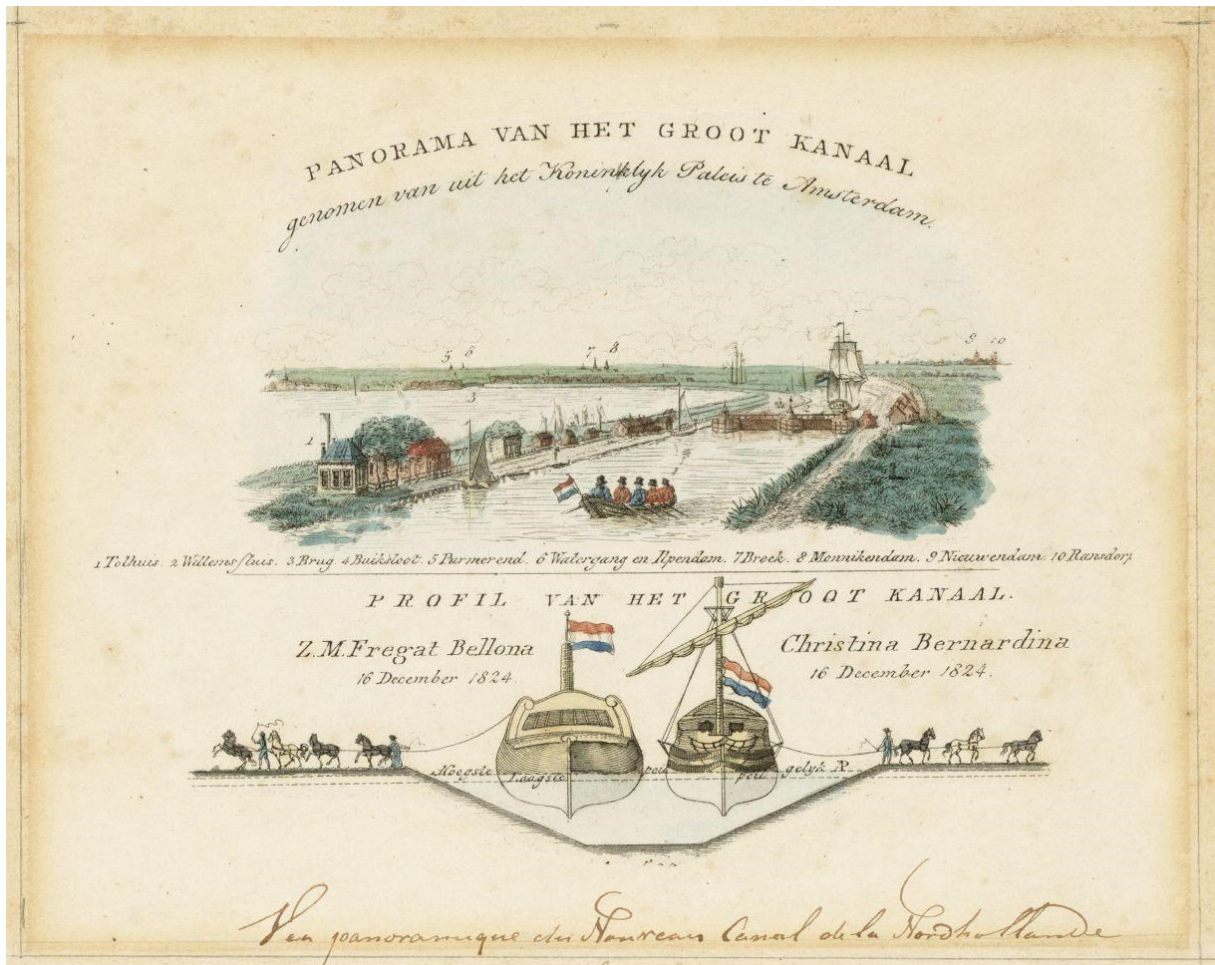 PANORAMA VAN HET GROOT KANAAL
genomen van uit het Koninklyk Paleis te Amsterdam.
5 6
7 8
9 10
4
3
2
1
1 Tolhuis. 2 Willemsluis. 3 Brug. 4 Buiksloot. 5 Purmerend. 6 Watergang en Ilpendam. 7 Broek. 8 Monnikendam. 9 Nieuwendam. 10 Ransdorp
PROFIL VAN HET GROOT KANAAL.
Z.M. Fregat Bellona
16 December 1824.
Christina Bernardina
16 December 1824.
Hoogste peil gelyk AP.
Laagste peil
Vea panoramique du Nouveau Canal de la Nordhollande